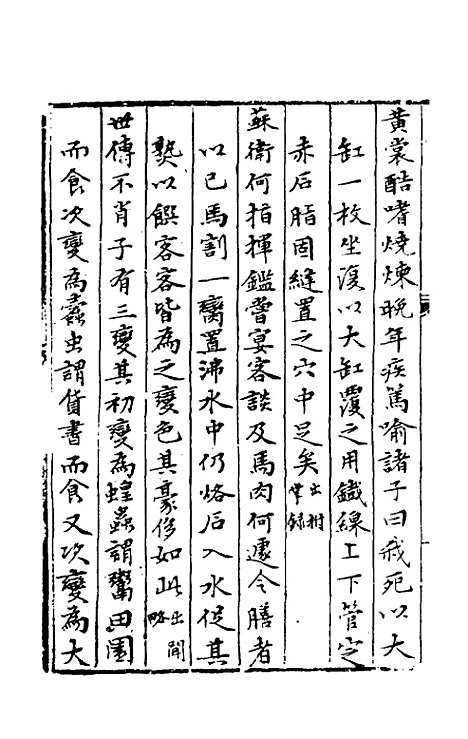 黃裳酷嗜燒煉晚年疾篤喻諸子曰我死以大
缸一枚坐復以大缸覆之用鐵線上下管定
赤石脂固縫置之穴中足矣出附掌錄
蘇衛何指揮鑑嘗宴客談及馬肉何遽令膳者
以已馬割一臠置沸水中仍烙石入水促其
熟以饌客客皆為之變色其豪侈如此出聞略
世傳不肖子有三變其初變為蝗蟲謂鬻田園
而食次變為蠹虫謂貨書而食又次變為大